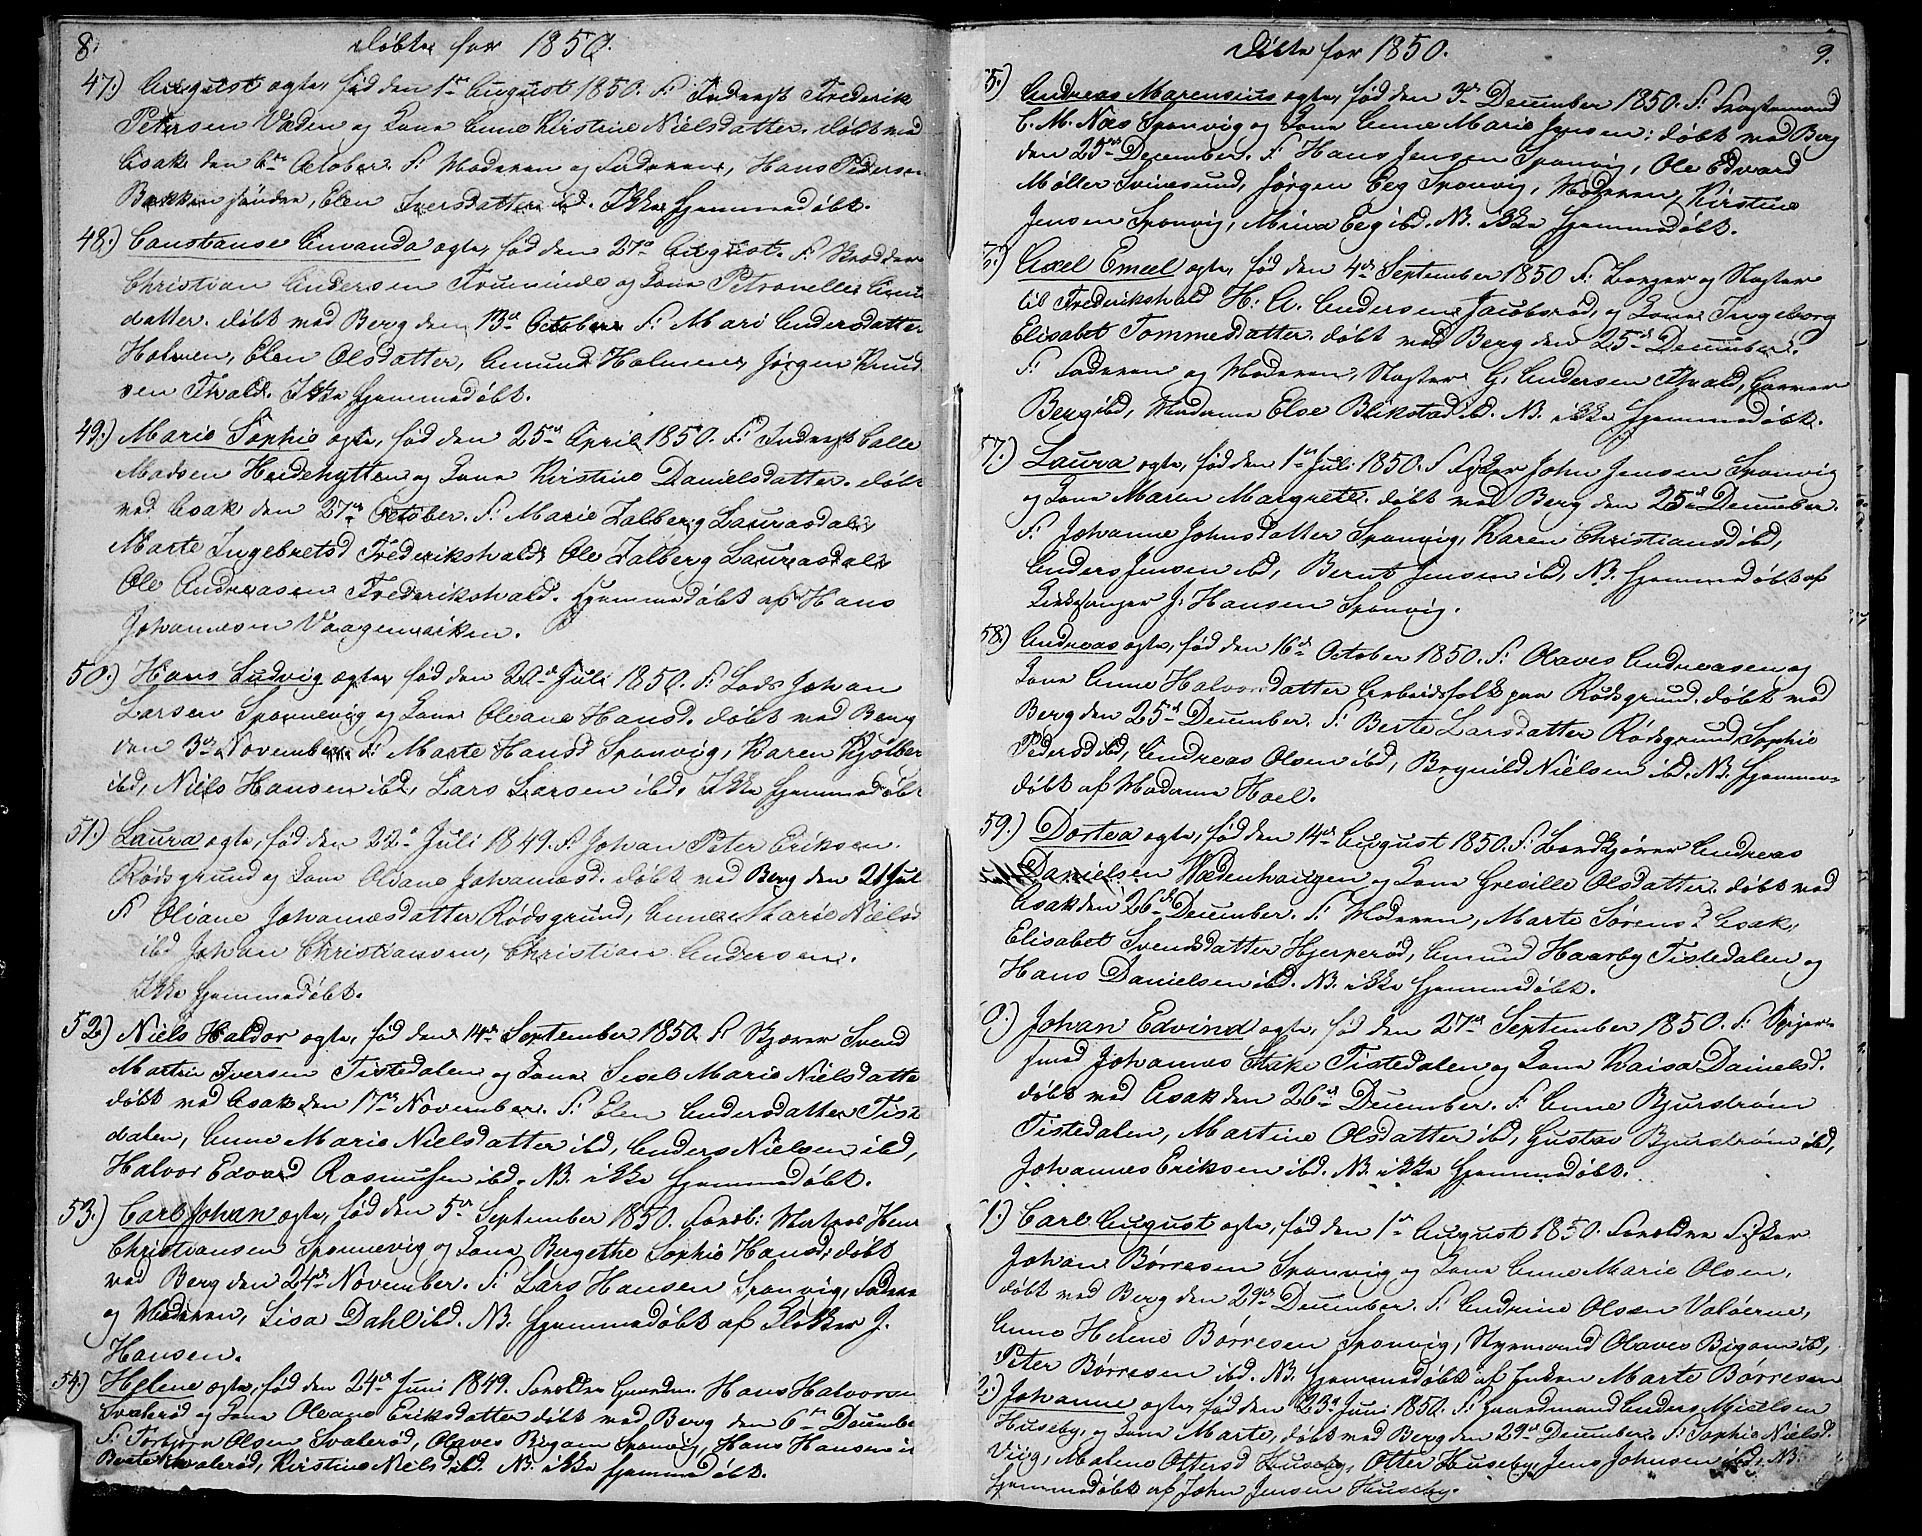 8.
Døbte for 1850.
47.) August ægte, fød den 1ste August 1850. F: Inderst Frederik
Petersen Væden og Kone Anne Kirstine Nielsdatter. døbt ved
Asak den 6te October. F: Moderen og Faderen, Hans Pedersen
Bakken søndre, Elen Iversdatter ibd. Ikke hjemmedøbt.
48.) Constanse Amanda ægte, fød den 27de August. F:
Christian Andersen og Kone Petronelle Amund
datter. døbt ved Berg den 13de October F: Mari Andersdatter
Holmen, Elen Olsdatter, Amund Holmen, Jørgen Knud
sen Fhald. Ikke hjemmedøbt.
49.) Marie Sophie ægte, fød den 25de April 1850. F: Inderst Calle
Madsen Heidehytten og Kone Kirstine Danielsdatter. døbt
ved Asak den 27de October. F: Marie Falberg Laurasdal
Marte Ingebretsd Frederikshald, Ole Falberg Laurasdal
Ole Andreasen Frederikshald. hjemmedøbt af Hans
Johannesen Vaagenviken.
50.) Hans Ludvig ægte, fød den 20de Juli 1850. F: Lods Johan
Larsen Sponnevig og Kone Oleane Hansd. døbt ved Berg
den 3die November F: Marte Hansd Sponvig, Karen Kjølber
ibd, Niels Hansen ibd, Lars Larsen ibd, Ikke hjemmedøbt
51.) Laura ægte, fød den 22de Juli 1849. F: Johan Peter Eriksen.
Rødsgrund og Kone Oliane Johannesd. døbt ved Berg den 21 Jul
F: Oliane Johannesdatter Rødsgrund, Anne Marie Nielsd
ibd Johan Christiansen, Christian Andersen.
Ikke hjemmedøbt.
52.) Niels Haldor ægte, fød den 14de September 1850. F: Kjører Svend
Martin Iversen Tistedalen og Kone Sesel Marie Nielsdatte
døbt ved Asak den 17de November. F: Elen Andersdatter Tist
dalen, Anne Marie Nielsdatter ibd, Anders Nielsen ibd,
Halvor Edvard Rasmusen ibd. NB. ikke hjemmedøbt.
53.) Carl Johan ægte, fød den 5te September 1850. Foreld: Matros Hen
Christiansen Sponnevig og Kone Bergethe Sophie Hansd, døbt
ved Berg den 24de November. F: Lars Hansen Sponvig, Faderen
og Moderen, Lisa Dahl ibd. NB. hjemmedøbt af Klokker J.
Hansen.
54.) Helene ægte, fød den 24de Juni 1849. Forældre Gaardm. Hans Halvorsen
Svalerød og Kone Oleane Eriksdatter døbt ved Berg den 6te Decembe
F: Torbjørn Olsen Svalerød, Olaves Bigam Sponvig, Hans Hansen i
Berte Svalerød, Kirstine Nielsd ibd. NB. ikke hjemmedøbt.
9.
Døbte for 1850.
5.) Andreas Marensius ægte, fød den 3de December 1850. F: Fragtemand
C. M. Næs Sponvig og Kone Anne Marie Jensen: døbt ved Berg
den 25de December. F: Hans Jensen Sponvig, Ole Edvard
Møller Svinesund, Jørgen Eeg Sponvig, Moderen, Kirstine
Jensen Sponvig, Mina Eeg ibd. NB. ikke hjemmedøbt.
6.) Axel Emeel ægte, fød den 4de September 1850 F: Borger og Slagter
til Frederikshald H: A. Andersen Jacobsrød, og Kone Ingeborg
Elisabet Tommesdatter. døbt ved Berg den 25de December.
F: Faderen og Moderen, Slagter G: Andersen Fhald, Garver
Berg ibd, Madame Else Blikstad ibd. NB. ikke hjemmedøbt.
7.) Laura ægte, fød den 1ste Juli 1850. F: Fisker John Jensen Sponvig
og Kone Maren Margrete. døbt ved Berg den 25de December.
F: Johanne Johnsdatter Sponvig, Karen Christiansd ibd,
Anders Jensen ibd, Bernt Jensen ibd, NB. hjemmedøbt af
Kirkesanger J: Hansen Sponvig.
58.) Andreas ægte, fød den 16de October 1850. F: Olaves Andreasen og
Kone Anne Halvorsdatter Arbeidsfolk paa Rødsgrund. døbt ved
Berg den 25de December. F: Berte Larsdatter Rødsgrund, Sophie
Pedersd ibd, Andreas Olsen ibd, Brynild Nielsen ibd. NB. hjemme-
døbt af Madame Hoel.
59.) Dortea ægte, fød den 14de August 1850. F: Bordkjører Andreas
Danielsen Wedenhaugen og Kone Gresille Olsdatter. døbt ved
Asak den 26de December. F: Moderen, Marte Sørensd Asak,
Elisabet Svendsdatter Hjerperød, Amund Haarby Tistedalen og
Hans Danielsen ibd. NB. ikke hjemmedøbt.
0.) Johan Edvind ægte, fød den 27de September 1850. F: Spiger-
smed Johannes Stake Tistedalen og Kone Kaisa Danielsd.
døbt ved Asak den 26de December. F: Anne Bjurstrøm
Tistedalen, Martine Olsdatter ibd, Gustav Bjurstrøm ibd,
Johannes Eriksen ibd. NB. ikke hjemmedøbt.
1.) Carl August ægte, fød den 1ste August 1850. Forældre Fisker
Johan Børresen Sponvig og Kone Anne Marie Olsen.
døbt ved Berg den 29de December. F: Andrine Olsen Valøerne,
Anne Helene Børresen Sponvig, Styrmand Olaves Bigam ibd,
Peter Børresen ibd. NB. hjemmedøbt af Enken Marte Børresen
2.) Johanne ægte, fød den 23de Juni 1850. F: Gaardmand Anders Nielsen
Huseby, og Kone Marte, døbt ved Berg den 29de December. F: Sophie Nielsd.
Viig, Malene Ottersd Huseby, Otter Huseby, Jens Johnsen ibd, NB.
hjemmedøbt af John Jensen Huseby.